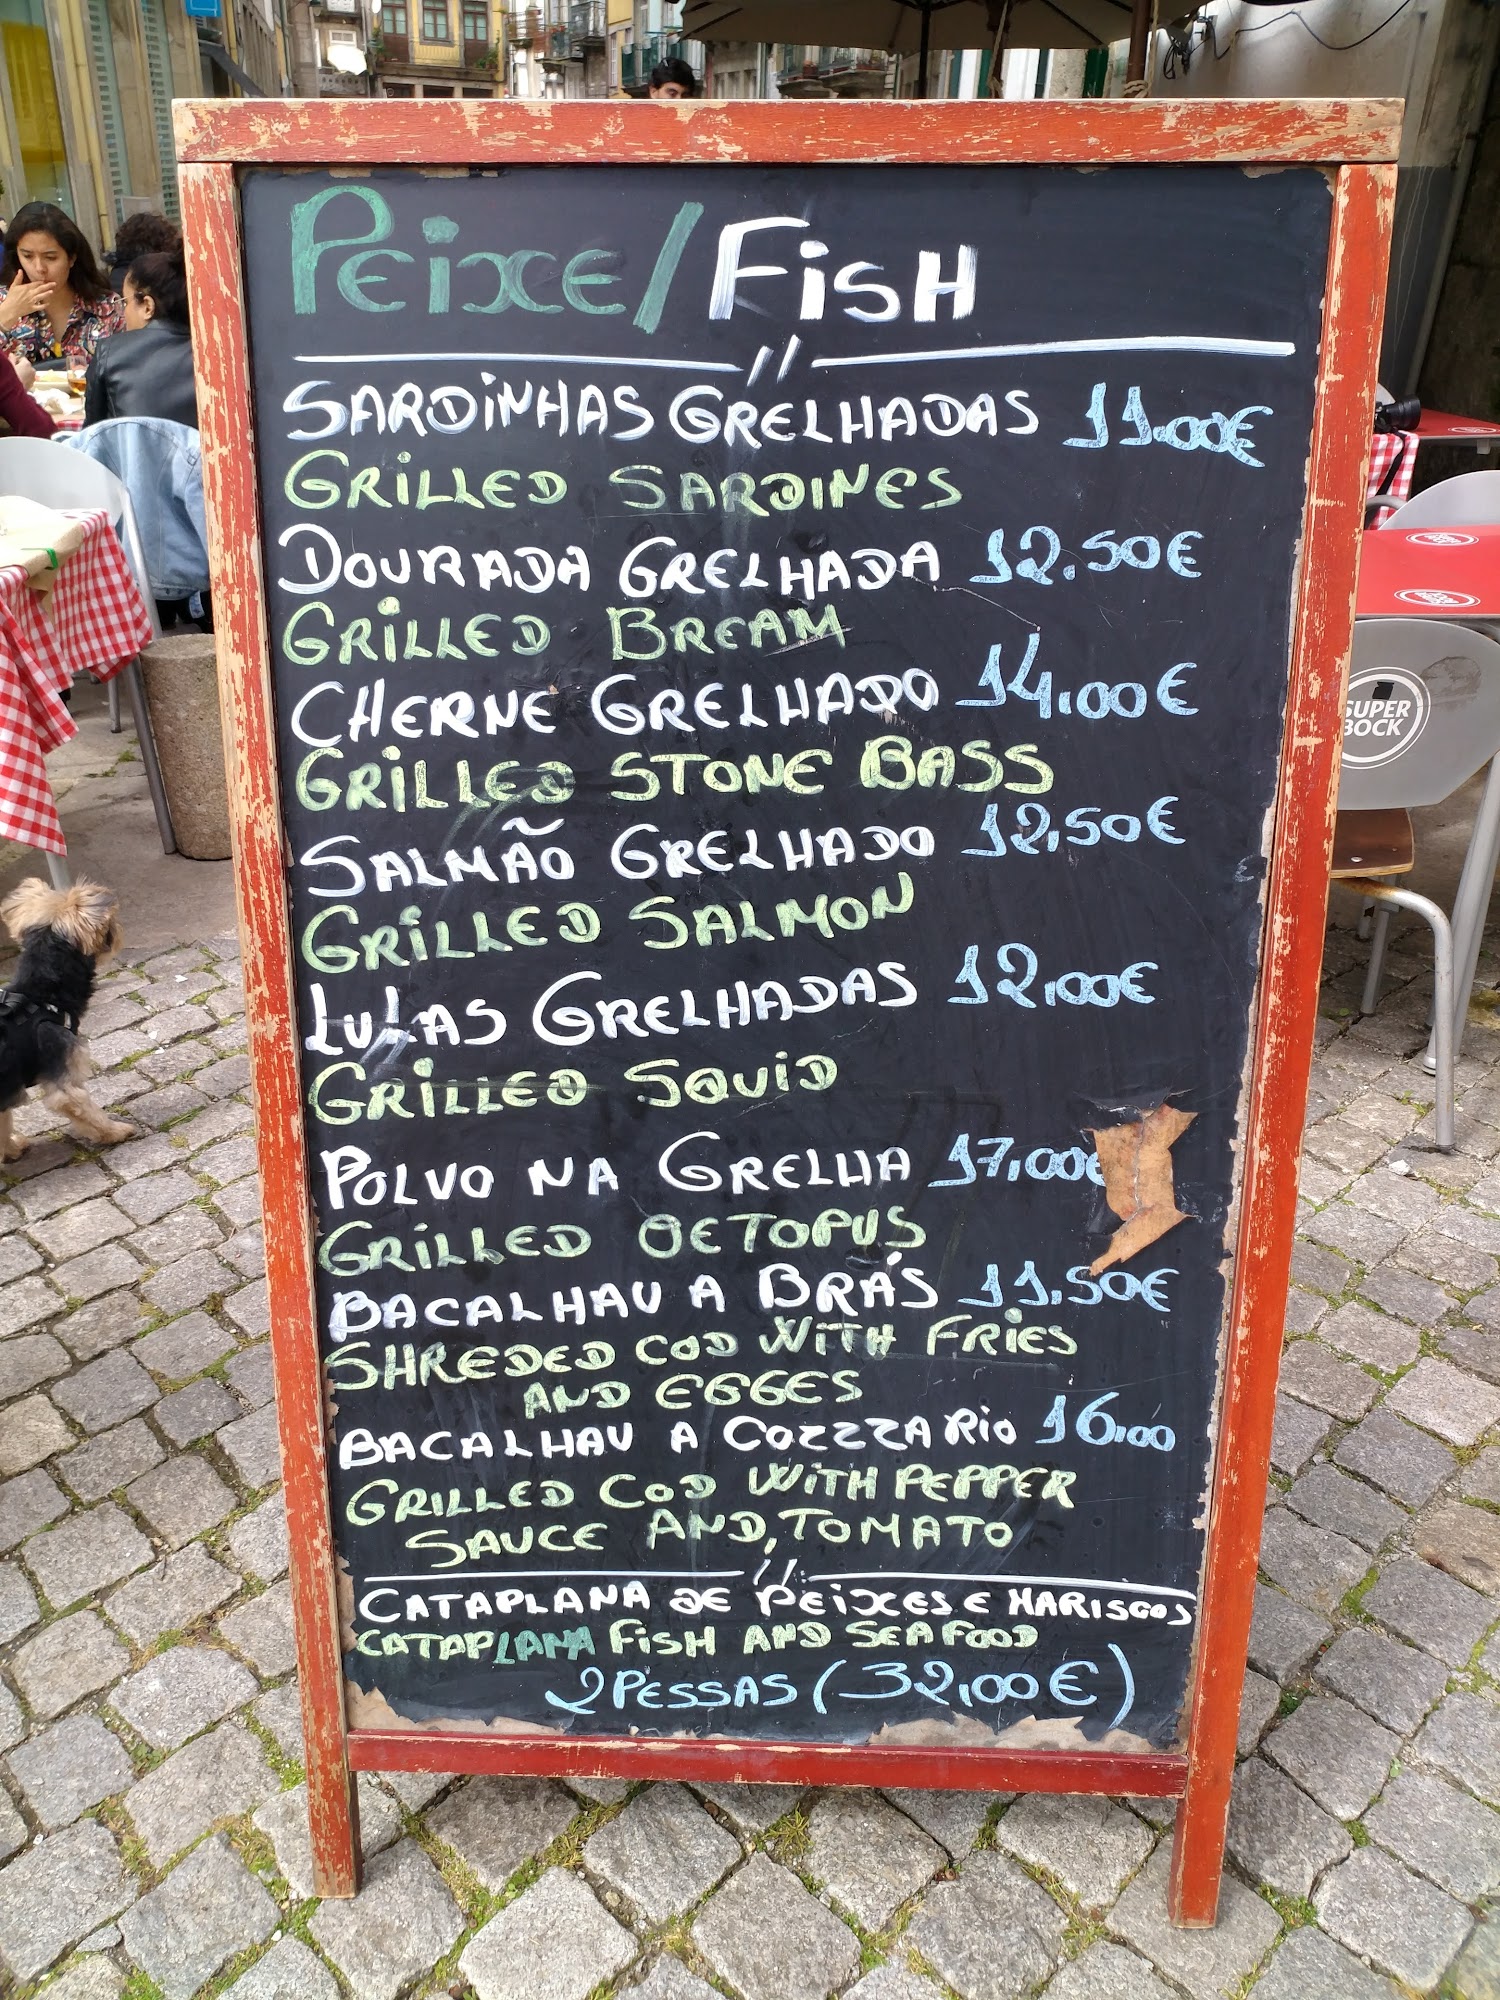 PEiXE/FiSH
SARDiNHAS GRELHADAS 11.00€
GRiLLED SARDINES
DOURADA GRELHADA 12.50€
GRiLLED BREAM
CHERNE GRELHADO 14,00€
GRiLLED STONE BASS
SALMÃO GRELHADO 12,50€
GRiLLED SALMON
LULAS GRELHADAS 12,00€
GRiLLED SQUiD
POLVO NA GRELHA 17,00€
GRiLLED OCTOPUS
BACALHAU A BRÁS 11.50€
SHREDED COD WiTH FRiES
AND EGGES
BACALHAU A COZZZARiO 16,00
GRiLLED COD WiTH PEPPER
SAUCE AND, TOMATO
CATAPLANA DE PEiXES E MARISCOS
CATAPLANA FiSH AND SEAFOOD
2 PESSAS (32,00€)
SUPER
BOCK